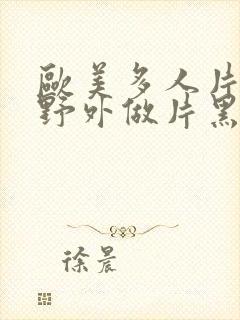 歐美多人片
野外做片黑
徐晨